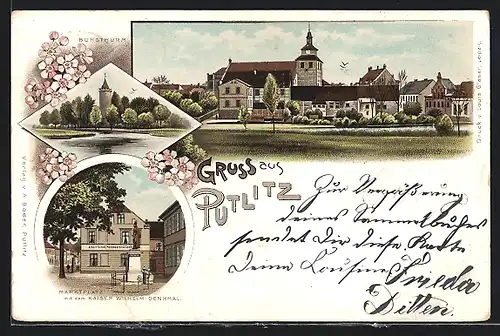 BURGTHURM.
GRUSS aus
PUTLITZ
MARKTPLATZ
mit dem KAISER WILHELM-DENKMAL.
Verlag v. A. Baeck, Putlitz
Druck v. Louis Glaser, Leipzig
Zur Vergrößerung
deines Sammelbuches
sendet Dir diese Karte
Deine Cousine Frieda
Ditten.